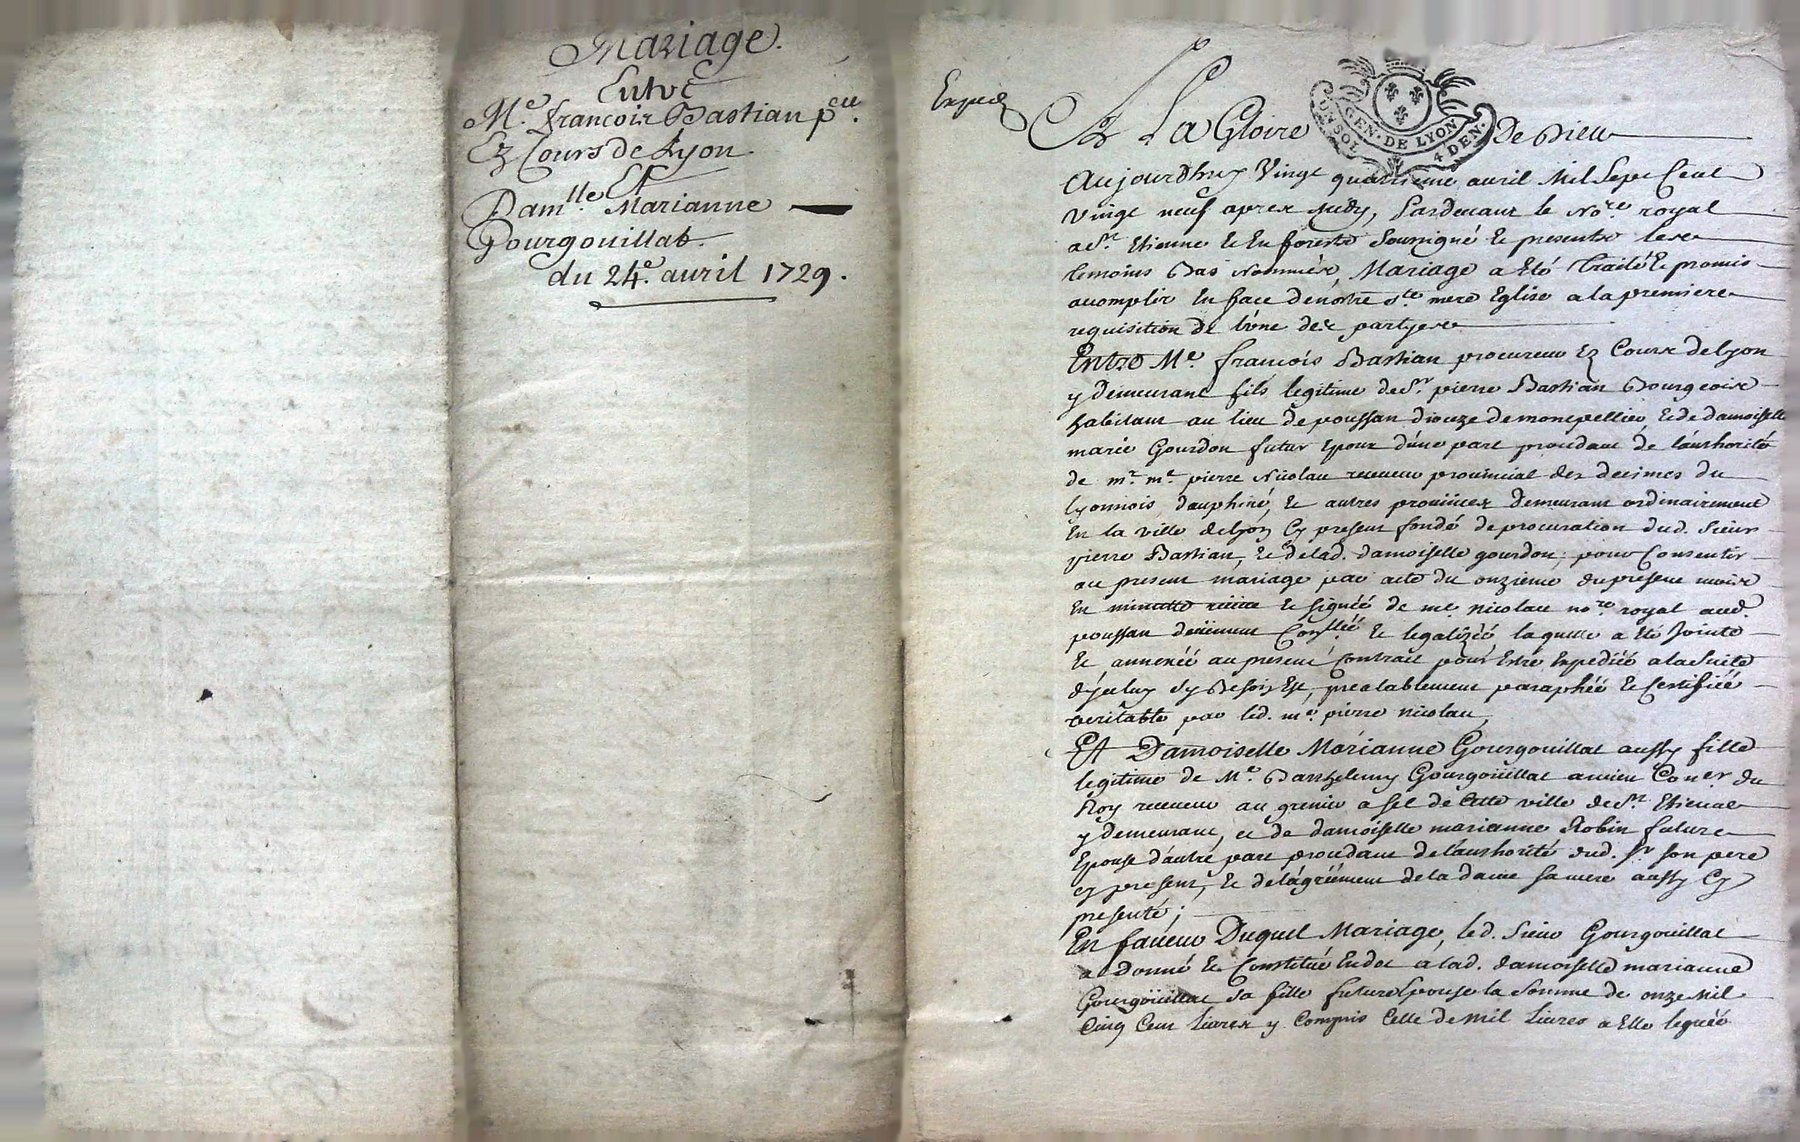 Mariage.
Entre
Me. francois Bastian pcur.
Ez Cours de Lyon
Et
Damlle Marianne
Gourgouillat.
du 24e. avril 1729.
Exped
A La Gloire De Dieu
GEN. DE LYON
UN SOL 4 DEN.
Aujourdhuy Vingt quatrieme avril Mil Sept Cent
Vingt neuf apres midy, Pardevant le Nore. royal
a St. Etienne Et En forests Soussigné Et presents les
temoins Bas Nommés, Mariage a Eté Traité Et promis
accomplir En face de nôtre Ste. mere Eglise a la premiere
requisition de l'une des partyes
Entre Me. francois Bastian procureur Ez Cours de lyon
y demeurant fils legitime de Sr. pierre Bastian Bourgeois
habitant au lieu de poussan dioceze de montpellier, Et de damoiselle
marie Gourdon futur Epoux d'une part procedant de l'authorité
de mr. me. pierre Nicolau receveur provincial des decimes du
lyonnois, dauphiné, Et autres provinces demeurant ordinairement
En la ville de lyon Cy present fondé de procuration dud. Sieur
pierre Bastian, Et de lad. damoiselle gourdon, pour Consentir
au present mariage par acte du onzieme du present mois
En minutte Et signée de me nicolau nore. royal aud.
poussan düement Conllée Et legalizée laquelle a Eté Jointe
Et annexée au present Contract pour Estre Expediée a la Suite
d'jceluy S'y Besoin Est, prealablement paraphée Et Certifiée
veritable par led. me. pierre nicolau,
Et Damoiselle Marianne Gourgouillat aussy fille
legitime de Me. Barthelemy Gourgoüillat ancien Coner du
Roy receveur au grenier a sel de Cette ville de St. Etienne
y demeurant, et de damoiselle marianne Robin future
Epouse d'autre part procedant de l'authorité dud. Sr son pere
cy present, Et de l'agréement de la dame sa mere aussy Cy
presente;
En faveur Duquel Mariage, led. Sieur Gourgouillat
a Donné Et Constitué En dot a lad. damoiselle marianne
Gourgoüillat sa fille future Epouse la Somme de onze Mil
Cinq Cent Livres y Compris Celle de Mil Livres a Elle leguée